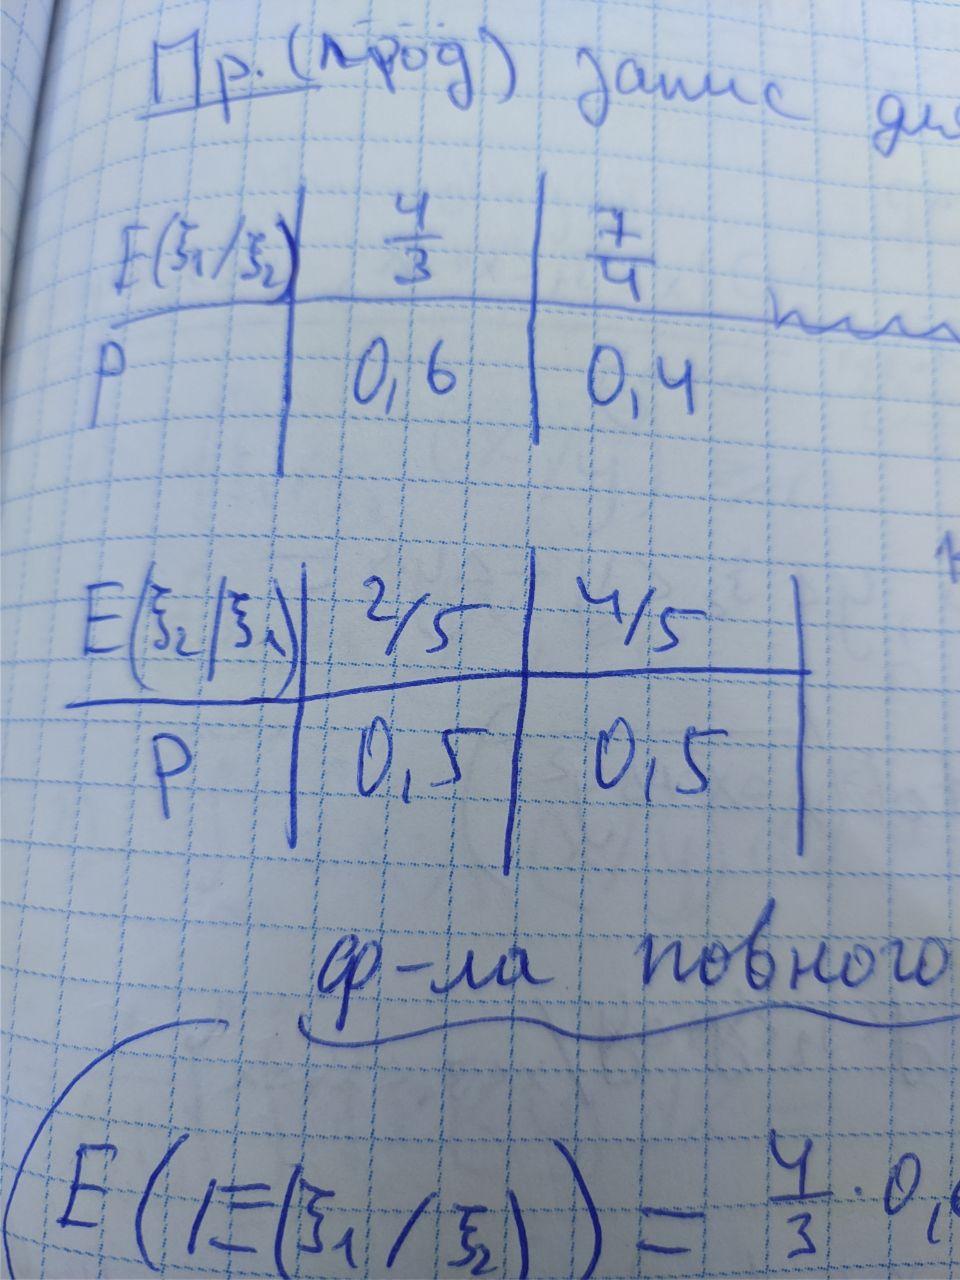 Пр. (прод) запис
E(ξ₁/ξ₂) | 4/3 | 7/4
P | 0,6 | 0,4
E(ξ₂|ξ₁) | 2/5 | 4/5
P | 0,5 | 0,5
ф-ла повного
E(E(ξ₁/ξ₂)) = 4/3 · 0,